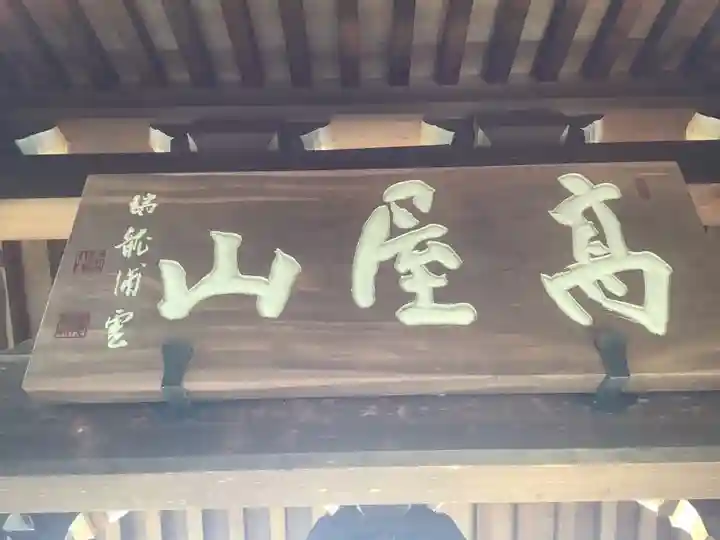 高屋山
瑞龍浦雲